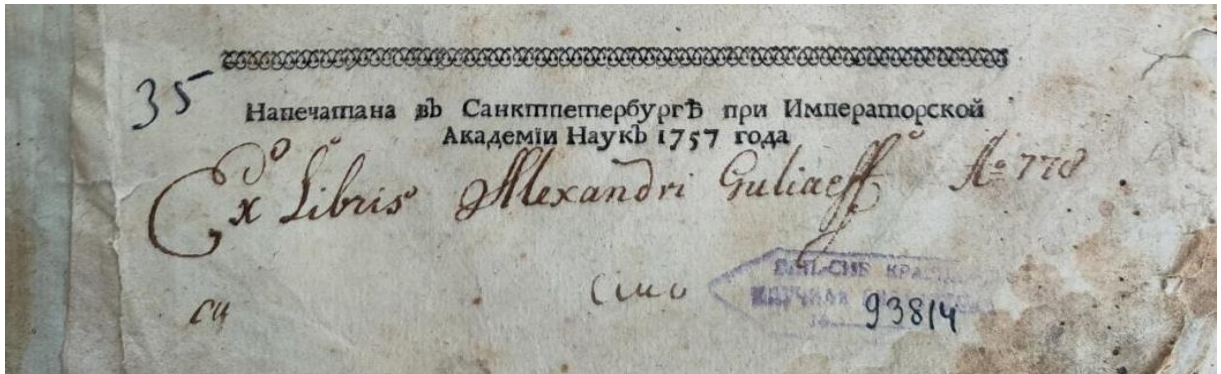 35
Напечатана въ Санктпетербургѣ при Императорской
Академїи Наукъ 1757 года
Ex Libris Alexandri Guliaeff Ao 778
ЗАП.-СИБ КРАЕВАЯ
НАУЧНАЯ
93814